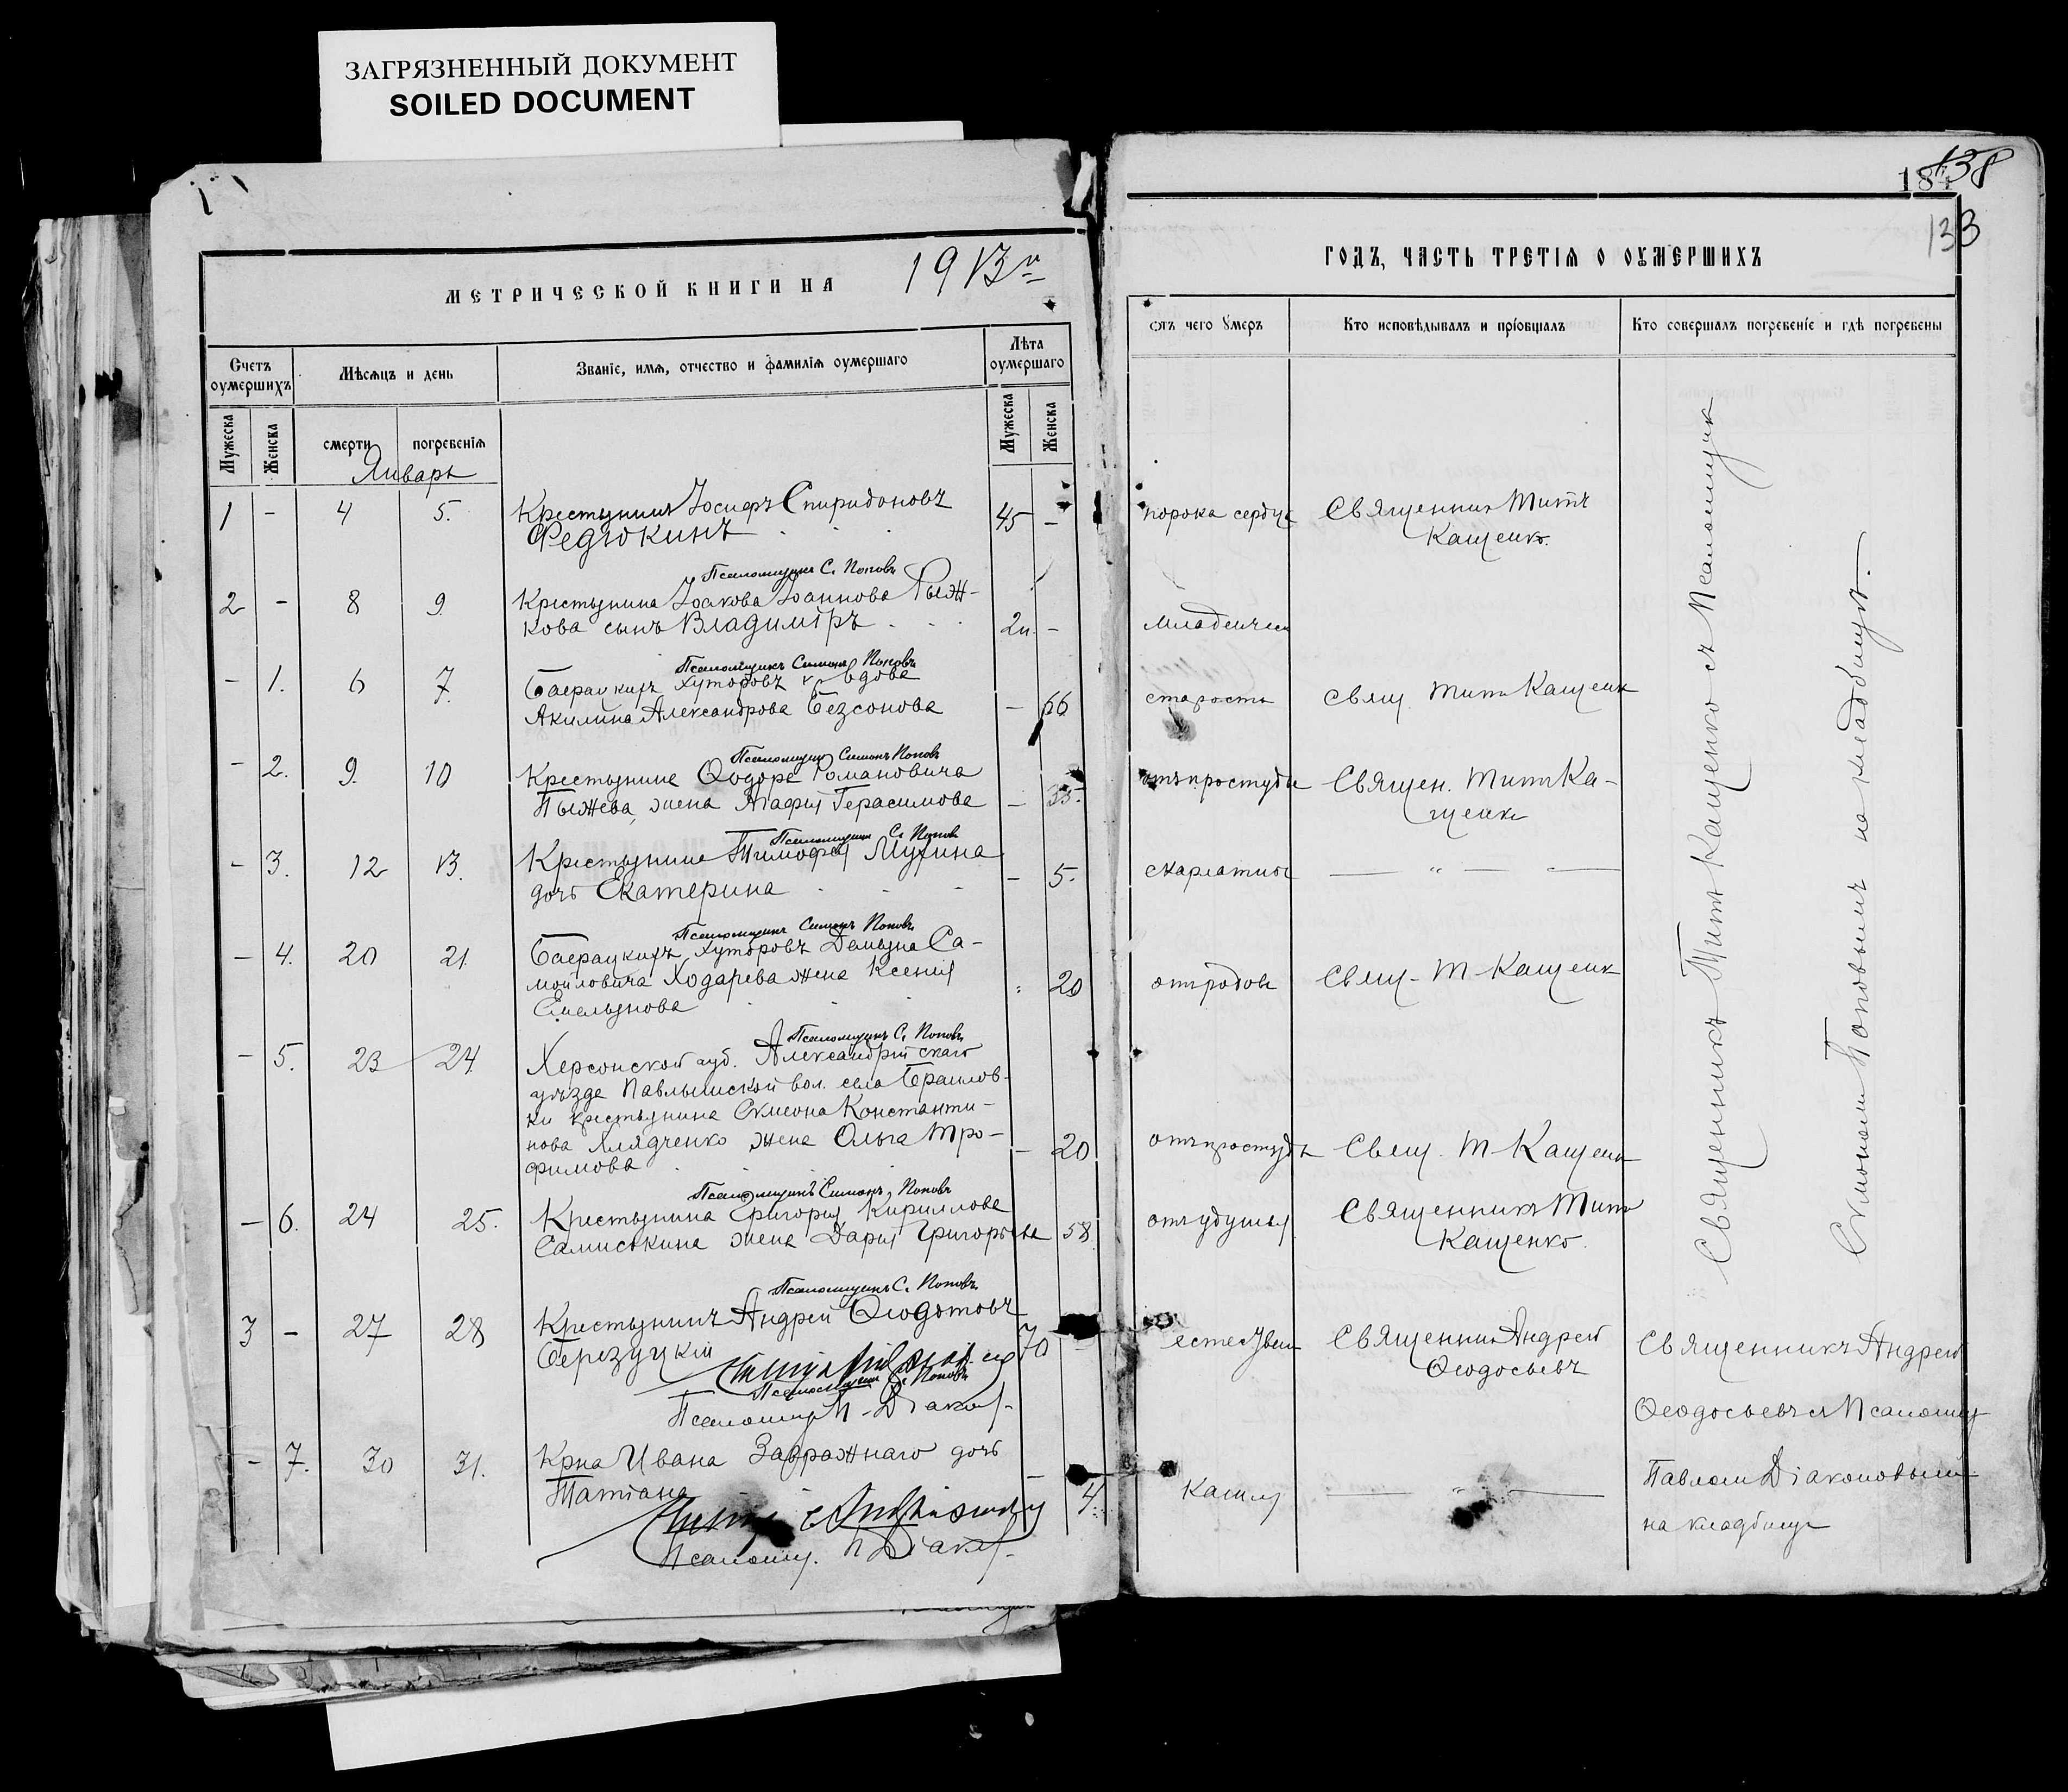 ЗАГРЯЗНЕННЫЙ ДОКУМЕНТ
SOILED DOCUMENT
МЕТРИЧЕСКОЙ КНИГИ НА 1913 г
Счетъ оумершихъ
Мѣсяцъ и день
Званіе, имя, отчество и фамилія оумершаго
Лѣта оумершаго
Мужеска
Женска
смерти
погребенія
Мужеска
Женска
Январь
1 - 4 5. Крестьянинъ Іосифъ Спиридоновъ
Федюкинъ 45 -
Псаломщикъ С. Поповъ
2 - 8 9. Крестьянина Іоакова Іоаннова Рыж-
кова сынъ Владиміръ 2н. -
Псаломщикъ Симонъ Поповъ
- 1. 6 7. Баерацкихъ хуторовъ вдова
Акилина Александрова Безсонова - 66
Псаломщикъ Симонъ Поповъ
- 2. 9. 10 Крестьянина Ѳеодора Романовича
Пыжева, жена Агафія Герасимова - 35.
Псаломщикъ С. Поповъ
- 3. 12 13. Крестьянина Тимофея Мухина
дочь Екатерина - 5.
Псаломщикъ Симонъ Поповъ
- 4. 20 21. Баерацкихъ хуторовъ Демьяна Са-
мойловича Ходарева жена Ксенія
Емельянова 20
Псаломщикъ С. Поповъ
- 5. 23 24. Херсонской губ. Александрійскаго
уѣзда Павлышской вол. села Браилов-
ки крестьянина Симеона Константи-
нова жена Ольга Тро-
фимова - 20
Псаломщикъ Симонъ Поповъ
- 6. 24 25. Крестьянина Григорія Кириллова
Самиськина жена Дарія Григорьева 58
Псаломщикъ С. Поповъ
3 - 27 28 Крестьянинъ Андрей Ѳеодотовъ
Березуцкій 70 -
Псаломщикъ С. Поповъ
Псаломщ. П. Діак
- 7. 30 31. Крна Ивана Завражнаго дочь
Татіана - 4.
Псаломщ. П Діак
138
184
133
ГОДЪ, ЧАСТЬ ТРЕТІЯ О ОУМЕРШИХЪ
Отъ чего умеръ
Кто исповѣдывалъ и пріобщалъ
Кто совершалъ погребеніе и гдѣ погребены
порока сердца Священникъ Титъ
Кащенко.
младенческ
старости Свящ. Титъ Кащенк
отъ простуды Священ. Титъ Ка-
щенко
скарлатины — " —
отъ родовъ Свящ. Т. Кащенк
отъ простуды Свящ. Т. Кащенк
отъ удушья Священникъ Титъ
Кащенко.
Священникъ Титъ Кащенко съ Псаломщик
Симономъ Поповымъ на кладбищѣ.
естеств Священникъ Андрей
Ѳеодосьевъ
Священникъ Андрей
Ѳеодосьевъ съ Псаломщ
Кашля — " —
Павломъ Діаконовымъ
на кладбищѣ